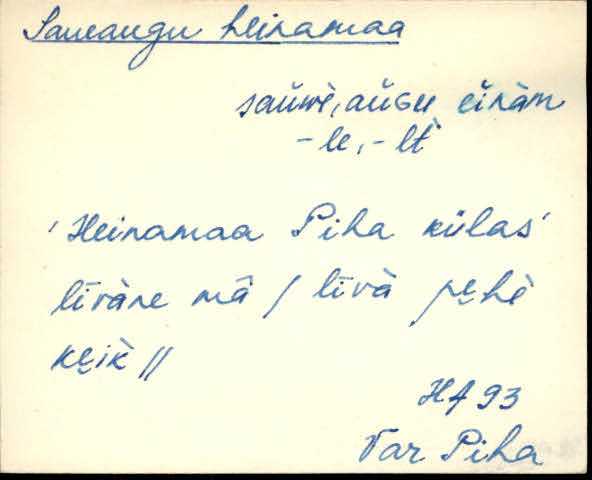 Saueaugu heinamaa
saùwè,aùGu eìnàm
-le, -lt
'Heinamaa Piha külas'
līvàne mā / līvà pe̬hè
ke̬ìk //
HA 93
Var Piha